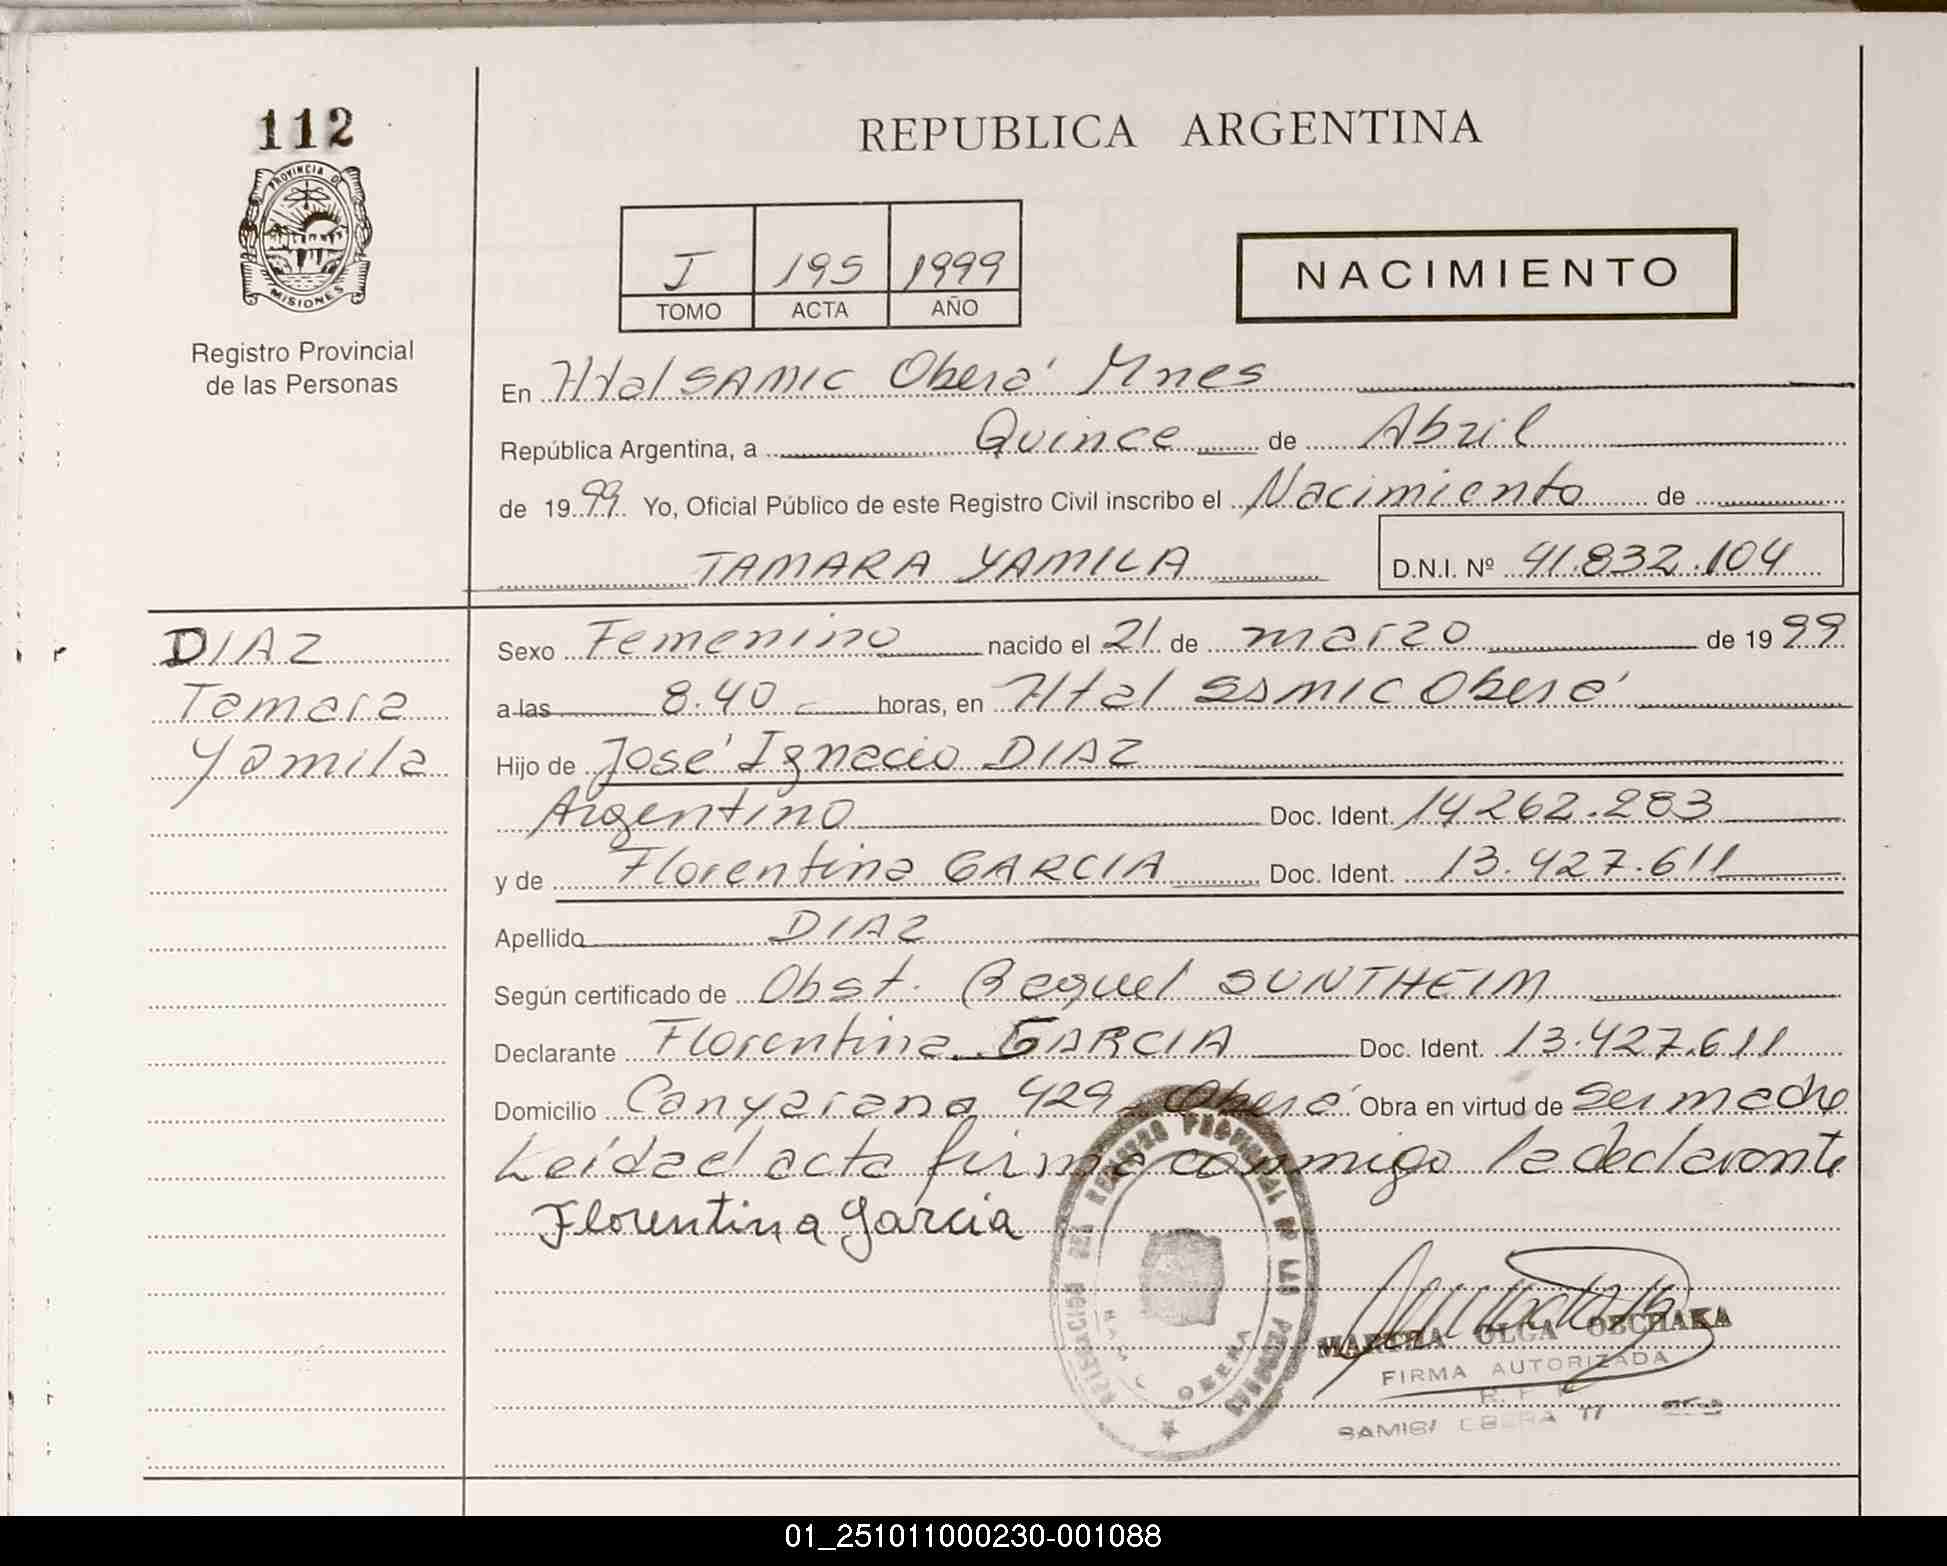 112
PROVINCIA DE
MISIONES
Registro Provincial
de las Personas
REPUBLICA ARGENTINA
I 195 1999
TOMO ACTA AÑO
NACIMIENTO
En Htal SAMIC Oberá Mnes
República Argentina, a Quince de Abril
de 1999 Yo, Oficial Público de este Registro Civil inscribo el Nacimiento de
TAMARA YAMILA D.N.I. Nº 41.832.104
DIAZ
Tamara
Yamila
Sexo Femenino nacido el 21 de marzo de 1999
a las 8.40 horas, en Htal SAMIC Oberá
Hijo de José Ignacio DIAZ
Argentino Doc. Ident. 14262.283
y de Florentina GARCIA Doc. Ident. 13.427.611
Apellido DIAZ
Según certificado de Obst. Raquel SUNTHEIM
Declarante Florentina GARCIA Doc. Ident. 13.427.611
Domicilio Canyarana 429 Oberá Obra en virtud de ser madre
Leída el acta firma conmigo la declarante
Florentina Garcia
REGISTRO PROVINCIAL DE LAS PERSONAS
OBERA
MARTHA OLGA OBCHAKA
FIRMA AUTORIZADA
01_251011000230-001088